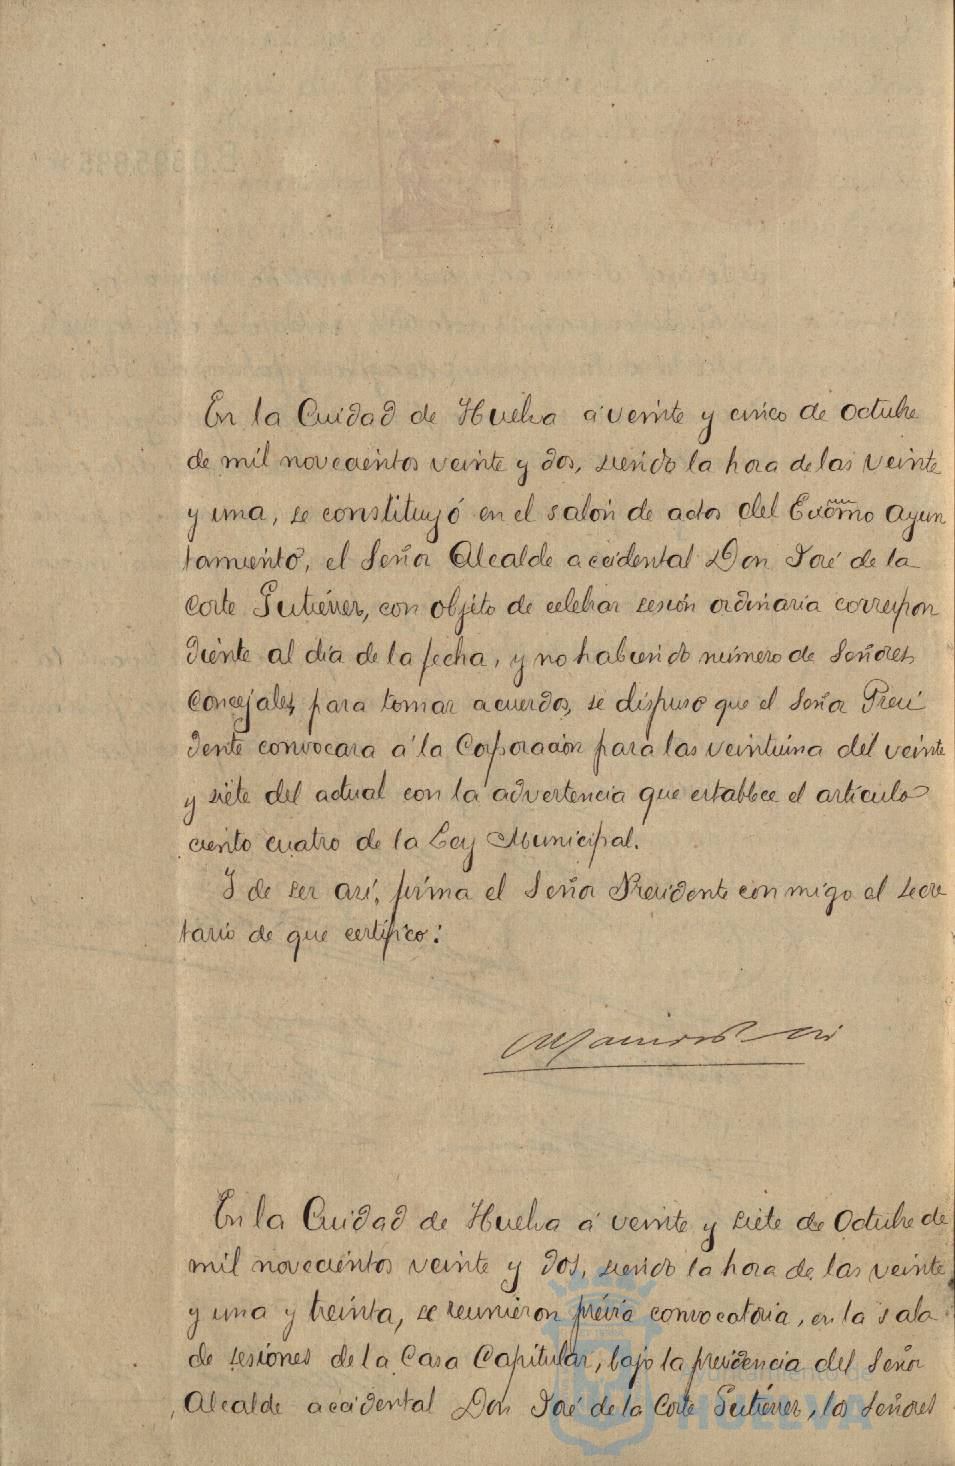 En la Cuidad de Huelva a veinte y cinco de Octubre
de mil novecientos veinte y dos, siendo la hora de las veinte
y una, se constituyó en el salón de actos del Excmo Ayun
tamiento, el Señor Alcalde accidental Don José de la
Corte Gutiérrez, con objeto de celebrar sesión ordinaria correspon
diente al día de la fecha, y no habiendo número de Señores
Concejales, para tomar acuerdos, se dispuso que el Señor Presi
dente convocara a la Corporación para las veintiuna del veinte
y siete del actual con la advertencia que establece el artículo
ciento cuatro de la Ley Municipal.
Y de ser así, firma el Señor Presidente conmigo el Secre
tario de que certifico:
En la Cuidad de Huelva a veinte y siete de Octubre de
mil novecientos veinte y dos, siendo la hora de las veinte
y una y treinta, se reunieron prévia convocatoria, en la sala
de sesiones de la Casa Capitular, bajo la presidencia del Señor
Alcalde accidental Don José de la Corte Gutiérrez, los Señores
Ayuntamiento de
HUELVA